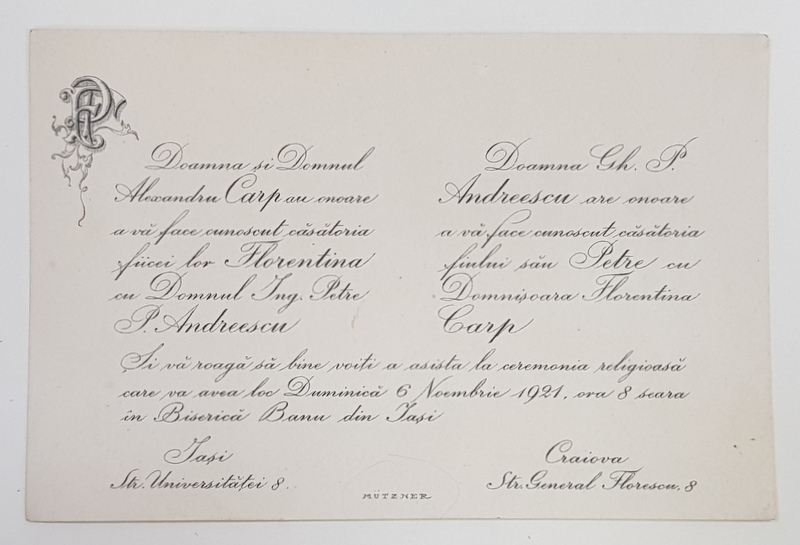 PA
Doamna și Domnul
Alexandru Carp au onoare
a vă face cunoscut căsătoria
fiicei lor Florentina
cu Domnul Ing. Petre
P. Andreescu
Doamna Gh. P.
Andreescu are onoare
a vă face cunoscut căsătoria
fiului său Petre cu
Domnișoara Florentina
Carp
Și vă roagă să bine voiți a asista la ceremonia religioasă
care va avea loc Duminică 6 Noembrie 1921, ora 8 seara
în Biserică Banu din Iași
Iași
Str. Universităței 8.
Craiova
Str. General Florescu. 8
MÜTZNER